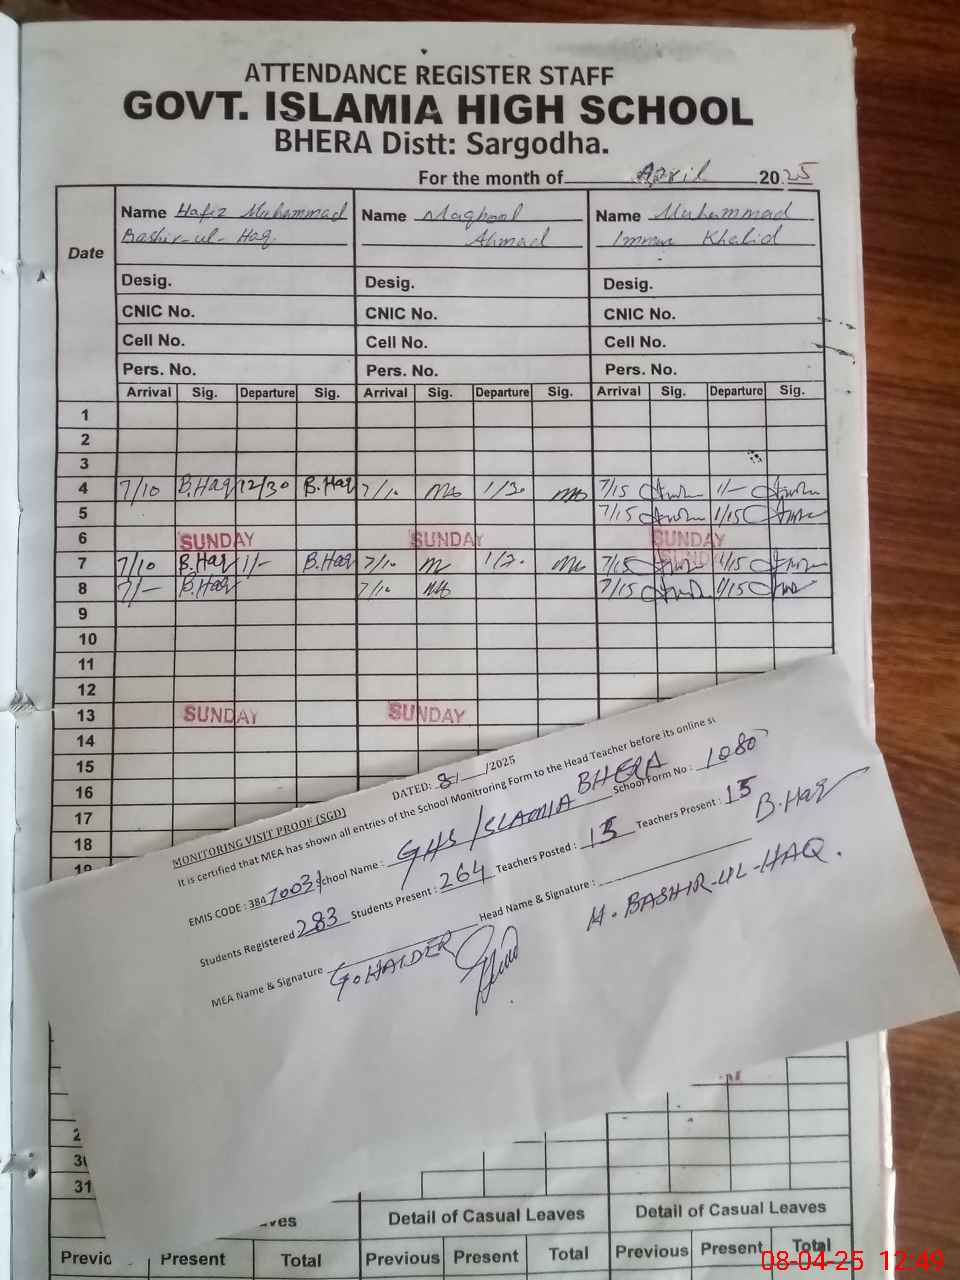 ATTENDANCE REGISTER STAFF
GOVT. ISLAMIA HIGH SCHOOL
BHERA Distt: Sargodha.
For the month of April 2025
Date
Name Hafiz Muhammad Bashir-ul-Haq
Name Maqbool Ahmad
Name Muhammad Imran Khalid
Desig. Desig. Desig.
CNIC No. CNIC No. CNIC No.
Cell No. Cell No. Cell No.
Pers. No. Pers. No. Pers. No.
Arrival Sig. Departure Sig. Arrival Sig. Departure Sig. Arrival Sig. Departure Sig.
1
2
3
4 7/10 B.Haq 12/30 B.Haq 7/10 1/30 7/15 1/-
5 7/15 1/15
6 SUNDAY SUNDAY SUNDAY
7 7/10 B.Haq 1/- B.Haq 7/10 7/15 SUNDAY 1/15
8 7/- B.Haq 7/10 7/15 1/15
9
10
11
12
13 SUNDAY SUNDAY
14
15
16
17
18
19
MONITORING VISIT PROOF (SGD)
DATED: 8/ /2025
It is certified that MEA has shown all entries of the School Monitroring Form to the Head Teacher before its online su
EMIS CODE : 38470031 School Name : GHS ISLAMIA BHERA School Form No : 1080
Students Registered 283 Students Present : 264 Teachers Posted : 15 Teachers Present : 15
MEA Name & Signature G.HAIDER Head Name & Signature : B.Haq
M. BASHIR-UL-HAQ.
31
ves Detail of Casual Leaves Detail of Casual Leaves
Previo Present Total Previous Present Total Previous Present Total
08-04-25 12:49